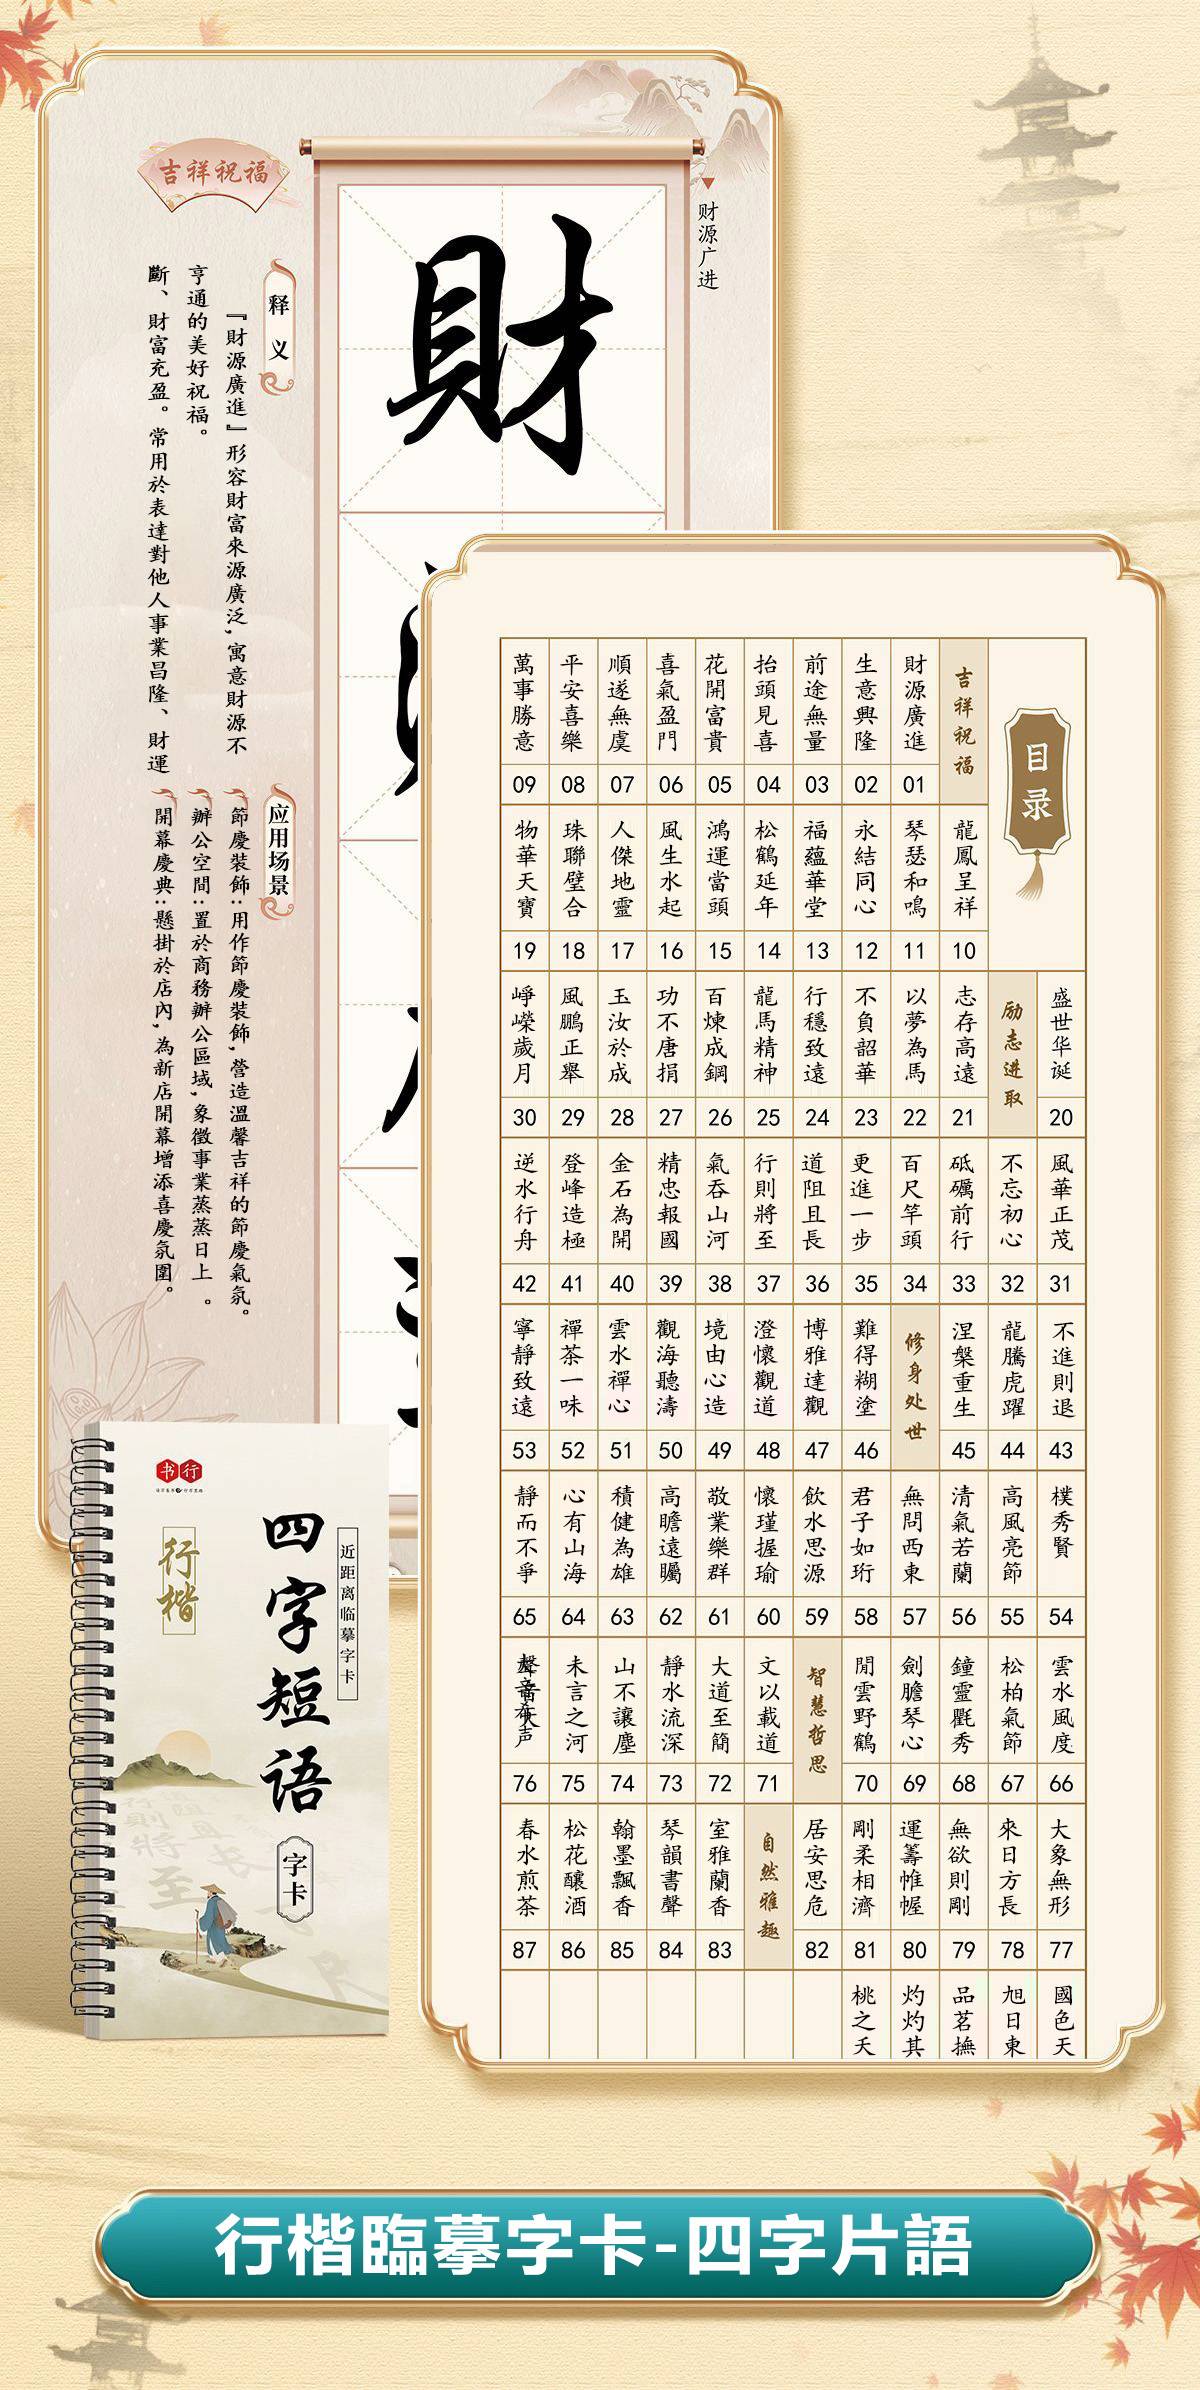 吉祥祝福
财源广进
財
释义
『財源廣進』形容財富來源廣泛,寓意財源不
亨通的美好祝福。
斷、財富充盈。常用於表達對他人事業昌隆、財運
应用场景
節慶裝飾:用作節慶裝飾,營造溫馨吉祥的節慶氣氛。
辦公空間:置於商務辦公區域,象徵事業蒸蒸日上。
開幕慶典:懸掛於店內,為新店開幕增添喜慶氛圍。
目录
吉祥祝福
財源廣進 01
生意興隆 02
前途無量 03
抬頭見喜 04
花開富貴 05
喜氣盈門 06
順遂無虞 07
平安喜樂 08
萬事勝意 09
龍鳳呈祥 10
琴瑟和鳴 11
永結同心 12
福蘊華堂 13
松鶴延年 14
鴻運當頭 15
風生水起 16
人傑地靈 17
珠聯璧合 18
物華天寶 19
盛世华诞 20
励志进取
志存高遠 21
以夢為馬 22
不負韶華 23
行穩致遠 24
龍馬精神 25
百煉成鋼 26
功不唐捐 27
玉汝於成 28
風鵬正舉 29
崢嶸歲月 30
風華正茂 31
不忘初心 32
砥礪前行 33
百尺竿頭 34
更進一步 35
道阻且長 36
行則將至 37
氣吞山河 38
精忠報國 39
金石為開 40
登峰造極 41
逆水行舟 42
不進則退 43
龍騰虎躍 44
涅槃重生 45
修身处世
難得糊塗 46
博雅達觀 47
澄懷觀道 48
境由心造 49
觀海聽濤 50
雲水禪心 51
禪茶一味 52
寧靜致遠 53
樸秀賢 54
高風亮節 55
清氣若蘭 56
無問西東 57
君子如珩 58
飲水思源 59
懷瑾握瑜 60
敬業樂群 61
高瞻遠矚 62
積健為雄 63
心有山海 64
靜而不爭 65
雲水風度 66
松柏氣節 67
鐘靈毓秀 68
劍膽琴心 69
閒雲野鶴 70
智慧哲思
文以載道 71
大道至簡 72
靜水流深 73
山不讓塵 74
未言之河 75
76
大象無形 77
來日方長 78
無欲則剛 79
運籌帷幄 80
剛柔相濟 81
居安思危 82
自然雅趣
室雅蘭香 83
琴韻書聲 84
翰墨飄香 85
松花釀酒 86
春水煎茶 87
國色天
旭日東
品茗撫
灼灼其
桃之夭
书行
近距离临摹字卡
四字短语
字卡
行楷
行楷臨摹字卡-四字片語